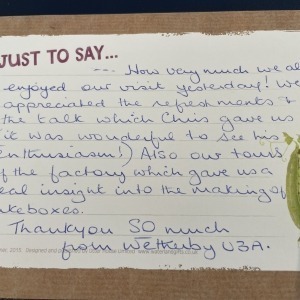 JUST TO SAY...
--- How very much we all
enjoyed our visit yesterday! We
appreciated the refreshments &
the talk which Chris gave us
(it was wonderful to see his
enthusiasm!) Also our tours
of the factory which gave us a
real insight into the making of
jukeboxes.
Thankyou SO much
from Wetherby U3A.
2015. Designed and